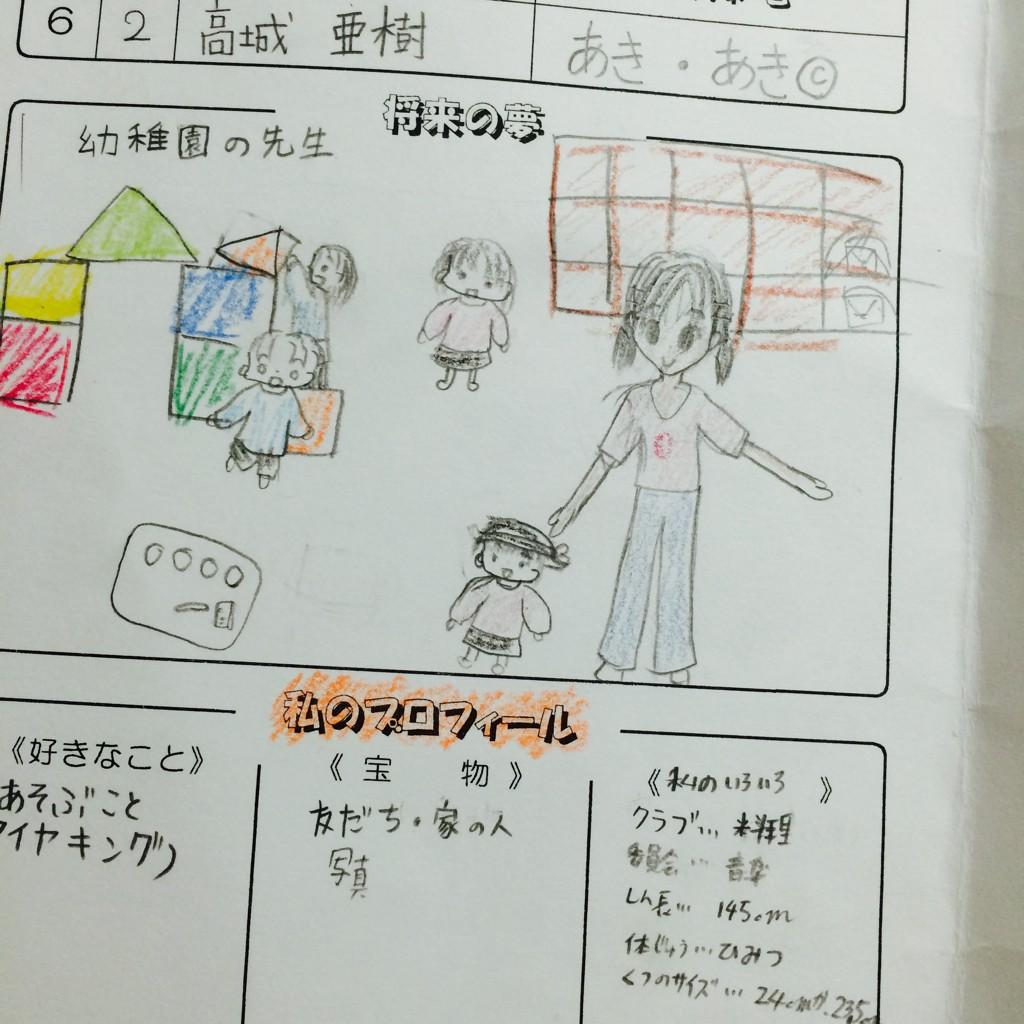 6 2 高城 亜樹 あき・あき©
将来の夢
幼稚園の先生
私のプロフィール
《好きなこと》
あそぶこと
イヤキング)
《宝物》
友だち・家の人
写真
《私のいろいろ》
クラブ… 料理
委員会… 音楽
しん長… 145cm
体じゅう…ひみつ
くつのサイズ… 24cmか.235